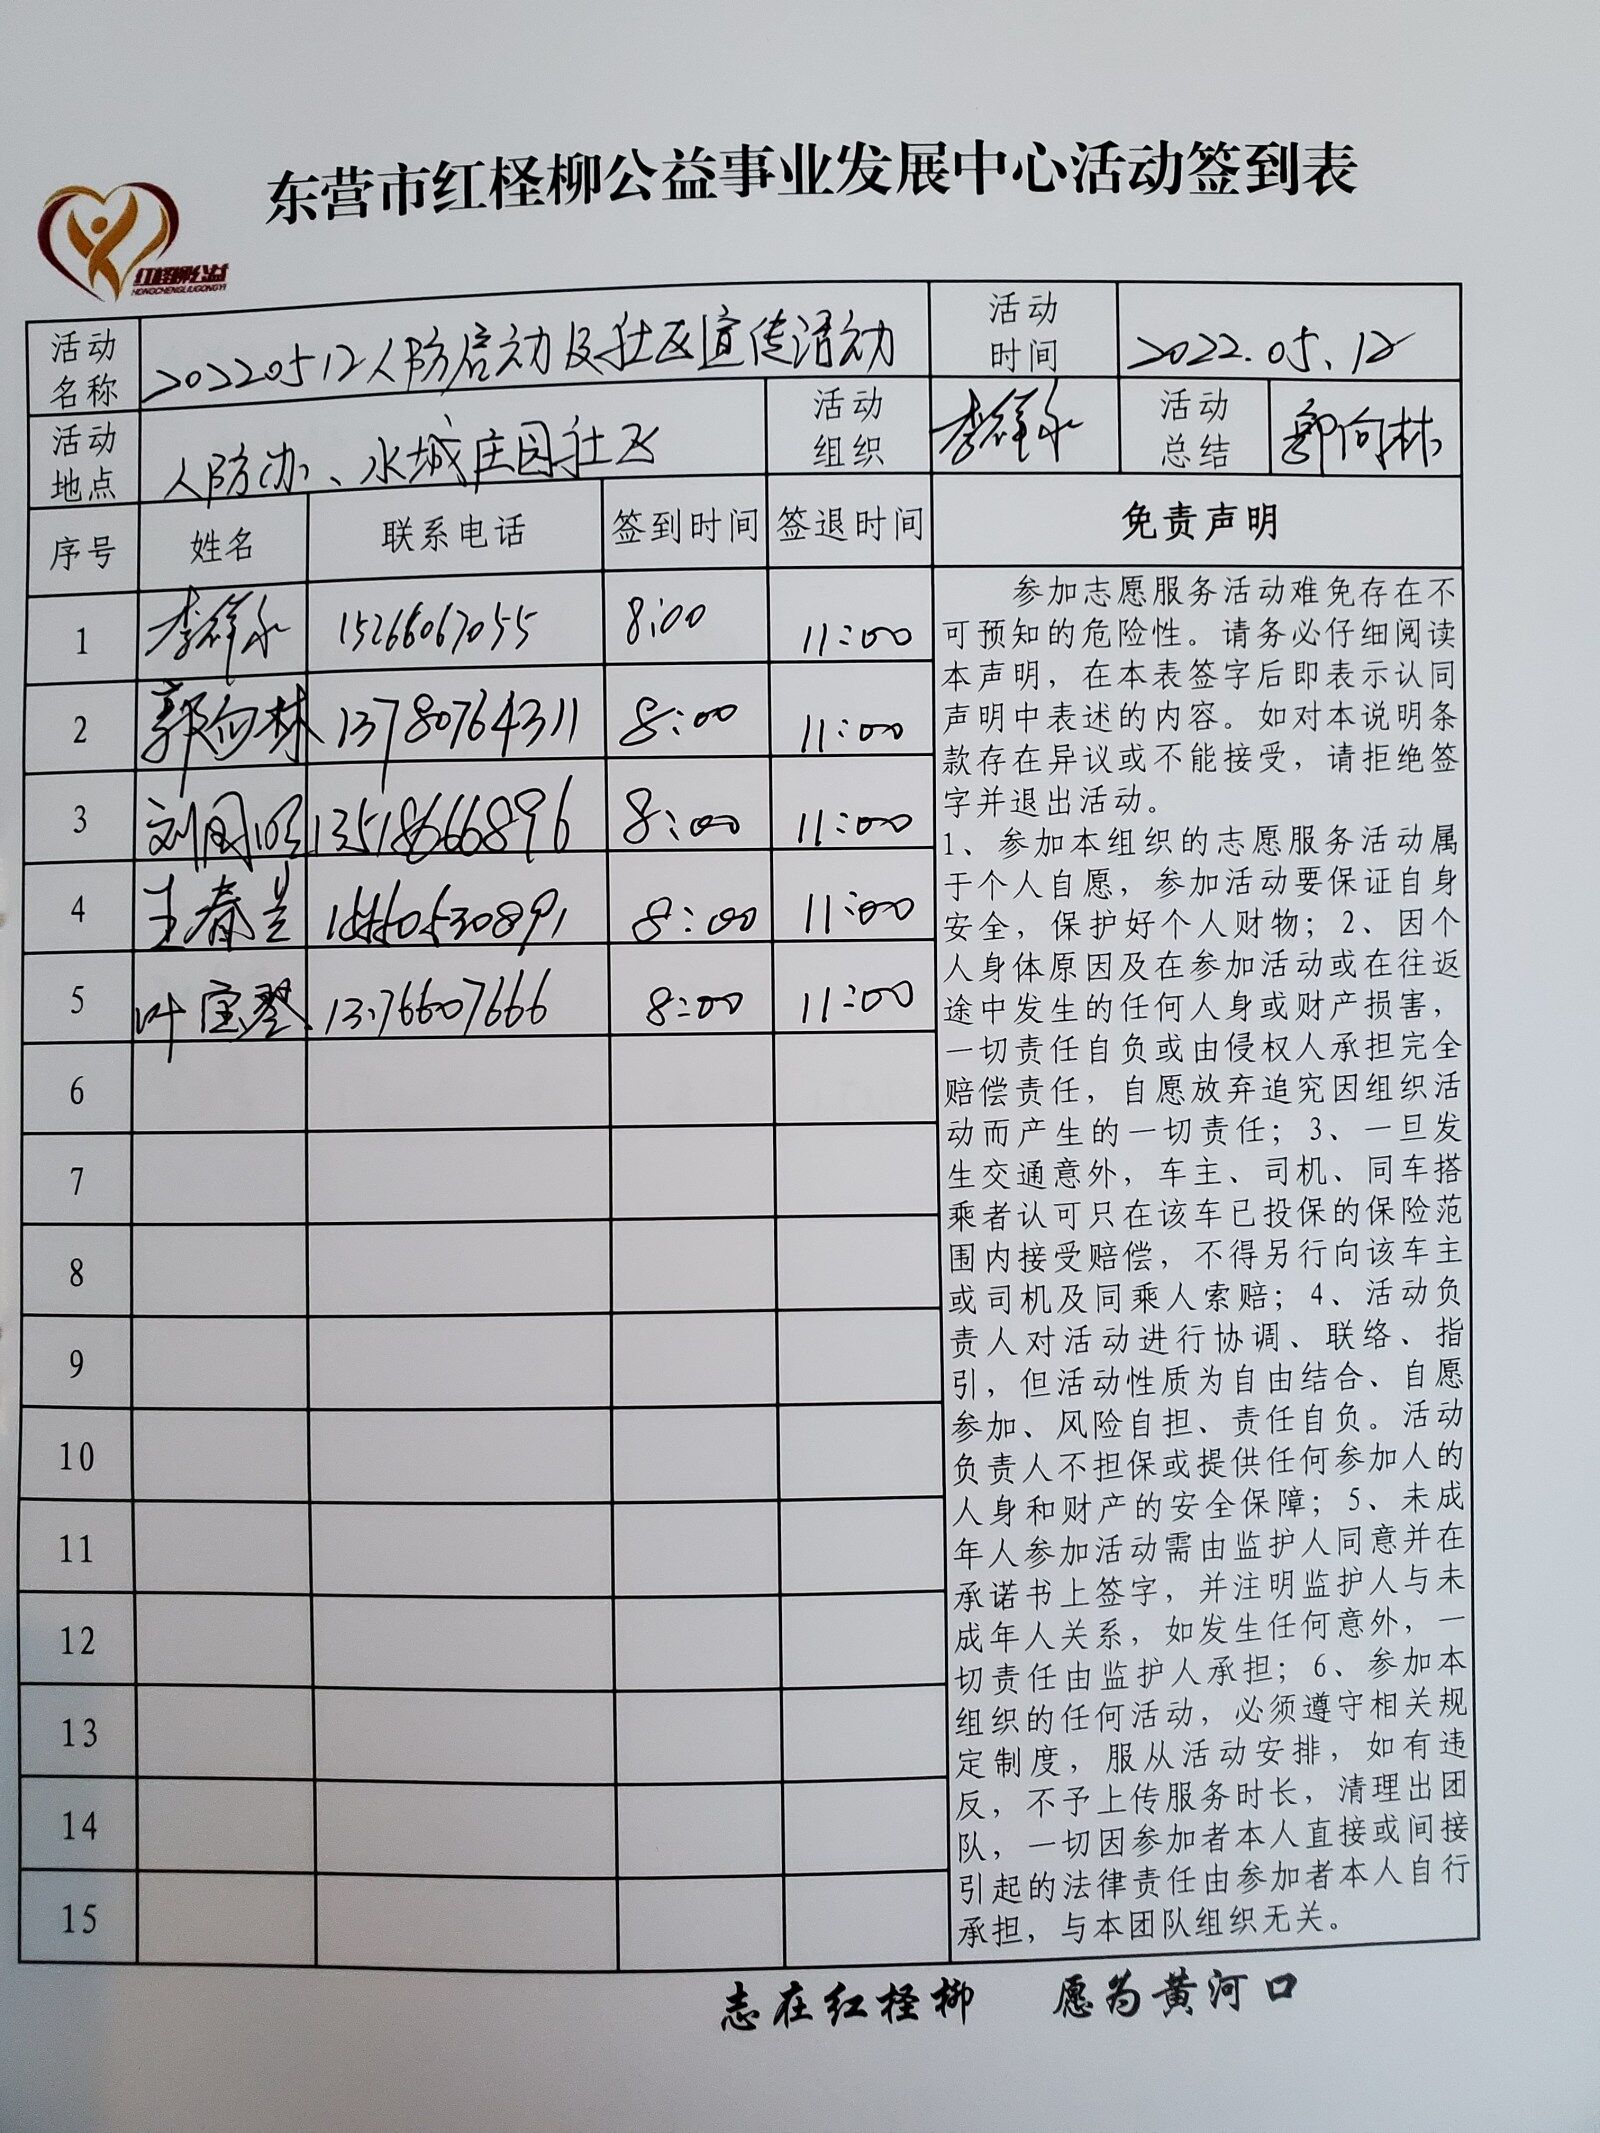 东营市红柽柳公益事业发展中心活动签到表
红柽柳公益
HONGCHENGLIUGONGYI
活动名称 20220512人防启动及社区宣传活动 活动时间 2022.05.12
活动地点 人防办、水城庄园社区 活动组织 李祥永 活动总结 郭向林
序号 姓名 联系电话 签到时间 签退时间 免责声明
1 李祥永 15266067055 8:00 11:00
2 郭向林 13780764311 8:00 11:00
3 13518666896 8:00 11:00
4 王春兰 8:00 11:00
5 叶宝琴 8:00 11:00
6
7
8
9
10
11
12
13
14
15
参加志愿服务活动难免存在不
可预知的危险性。请务必仔细阅读
本声明，在本表签字后即表示认同
声明中表述的内容。如对本说明条
款存在异议或不能接受，请拒绝签
字并退出活动。
1、参加本组织的志愿服务活动属
于个人自愿，参加活动要保证自身
安全，保护好个人财物；2、因个
人身体原因及在参加活动或在往返
途中发生的任何人身或财产损害，
一切责任自负或由侵权人承担完全
赔偿责任，自愿放弃追究因组织活
动而产生的一切责任；3、一旦发
生交通意外，车主、司机、同车搭
乘者认可只在该车已投保的保险范
围内接受赔偿，不得另行向该车主
或司机及同乘人索赔；4、活动负
责人对活动进行协调、联络、指
引，但活动性质为自由结合、自愿
参加、风险自担、责任自负。活动
负责人不担保或提供任何参加人的
人身和财产的安全保障；5、未成
年人参加活动需由监护人同意并在
承诺书上签字，并注明监护人与未
成年人关系，如发生任何意外，一
切责任由监护人承担；6、参加本
组织的任何活动，必须遵守相关规
定制度，服从活动安排，如有违
反，不予上传服务时长，清理出团
队，一切因参加者本人直接或间接
引起的法律责任由参加者本人自行
承担，与本团队组织无关。
志在红柽柳 愿为黄河口